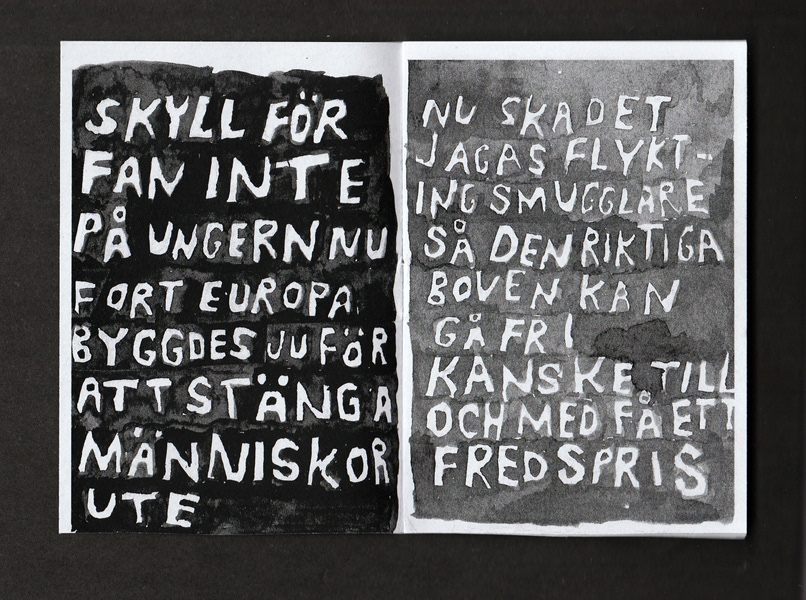 SKYLL FÖR
FAN INTE
PÅ UNGERN NU
FORT EUROPA
BYGGDES JU FÖR
ATT STÄNGA
MÄNNISKOR
UTE
NU SKA DET
JAGAS FLYKT-
INGSMUGGLARE
SÅ DEN RIKTIGA
BOVEN KAN
GÅ FRI
KANSKE TILL
OCH MED FÅ ETT
FREDSPRIS